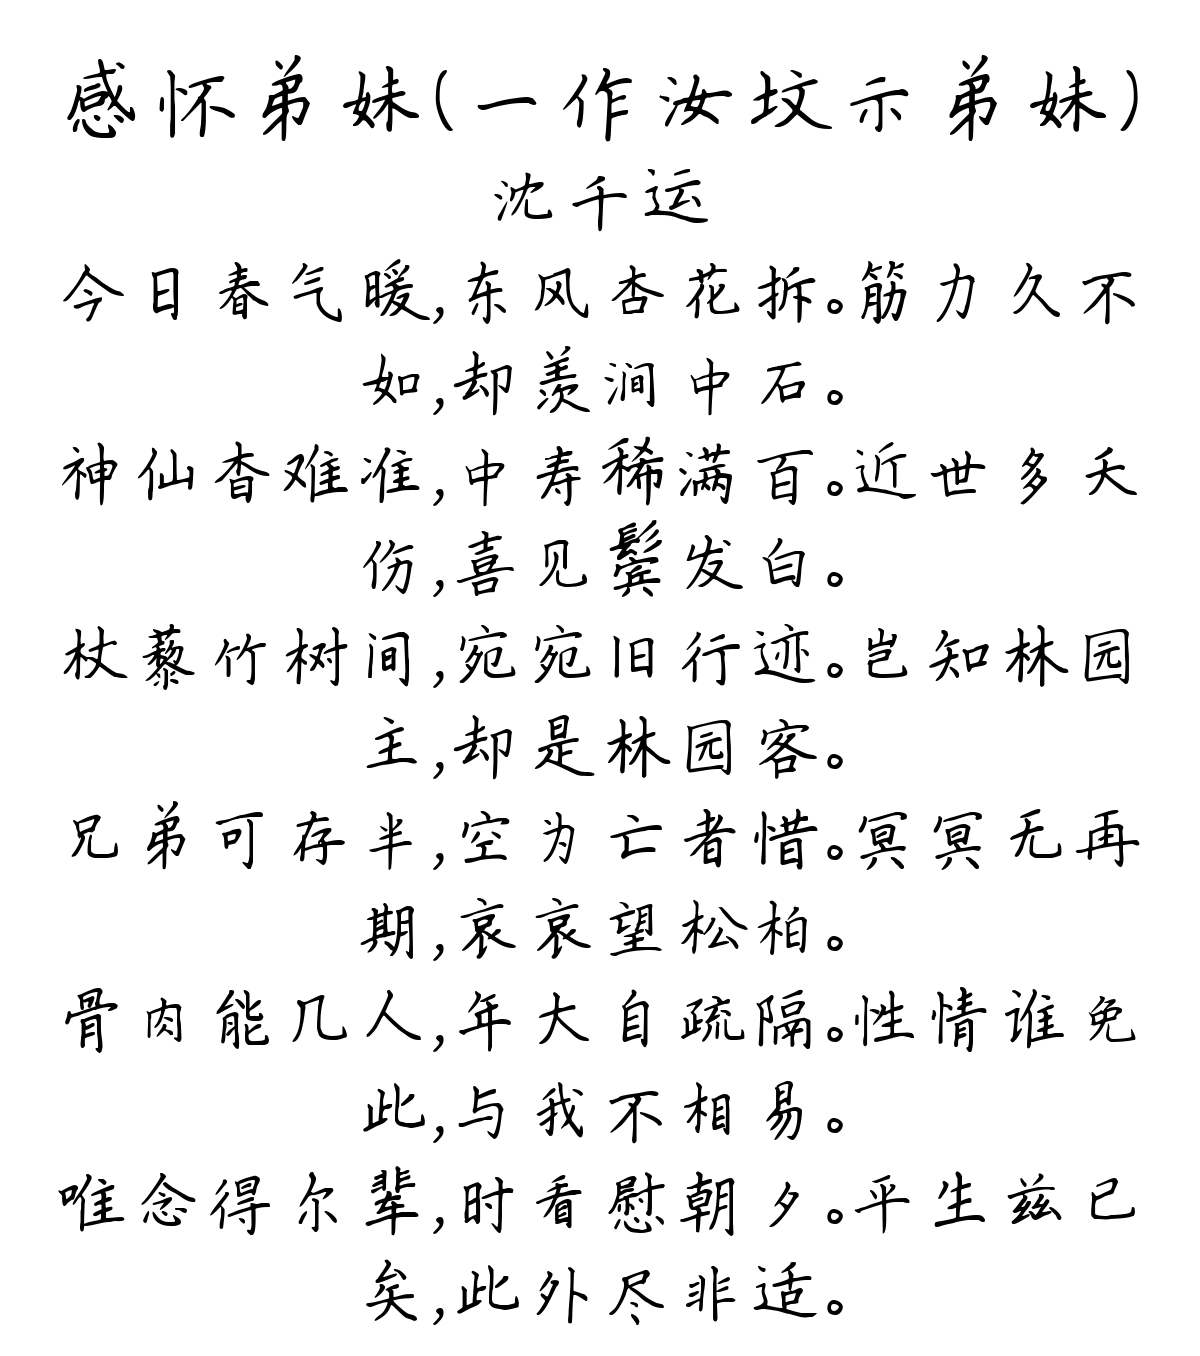 感怀弟妹(一作汝坟示弟妹)
沈千运
今日春气暖,东风杏花拆。筋力久不
如,却羡涧中石。
神仙杳难准,中寿稀满百。近世多夭
伤,喜见鬓发白。
杖藜竹树间,宛宛旧行迹。岂知林园
主,却是林园客。
兄弟可存半,空为亡者惜。冥冥无再
期,哀哀望松柏。
骨肉能几人,年大自疏隔。性情谁免
此,与我不相易。
唯念得尔辈,时看慰朝夕。平生兹已
矣,此外尽非适。